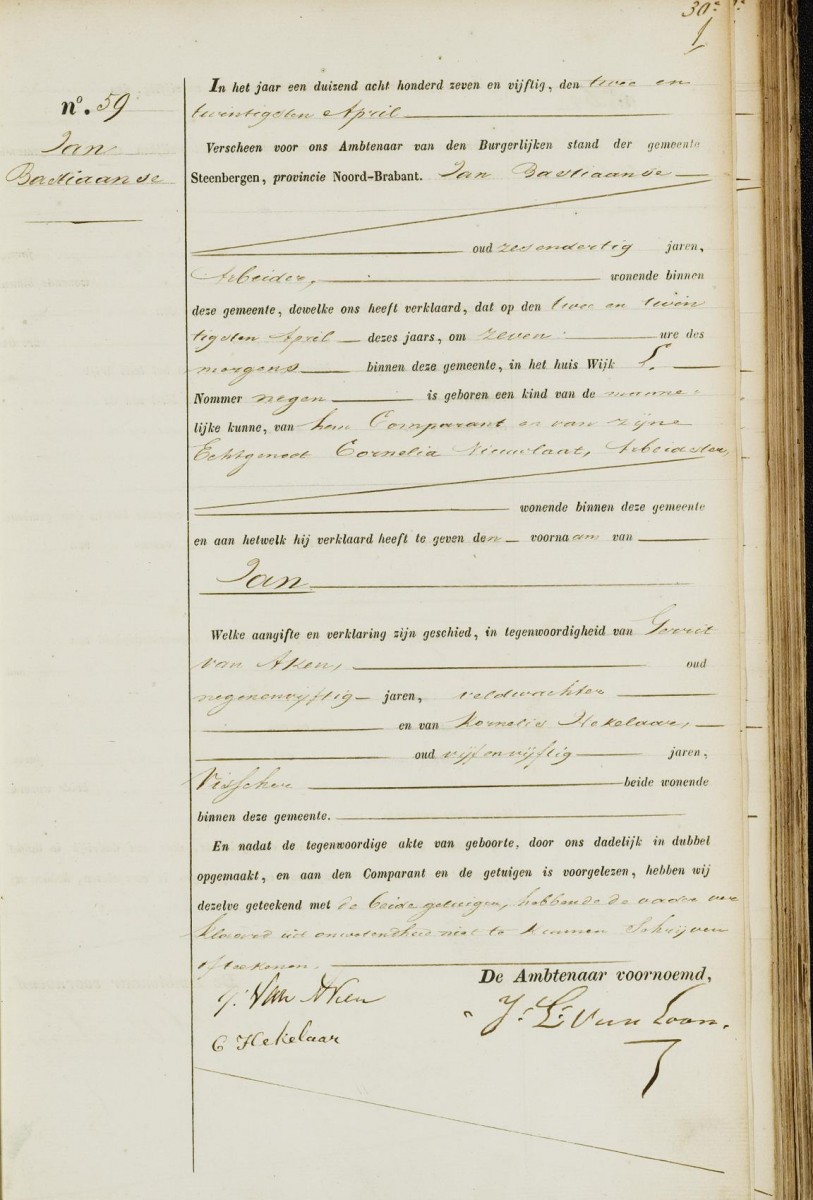 30e
1
nº. 59
Jan
Bastiaanse
In het jaar een duizend acht honderd zeven en vijftig, den twee en
twentigsten April
Verscheen voor ons Ambtenaar van den Burgerlijken stand der gemeente
Steenbergen, provincie Noord-Brabant. Jan Bastiaanse
oud zesendertig jaren,
Arbeider, wonende binnen
deze gemeente, dewelke ons heeft verklaard, dat op den twee en twen
tigsten April dezes jaars, om zeven ure des
morgens binnen deze gemeente, in het huis Wijk L.
Nommer negen is geboren een kind van de manne-
lijke kunne, van hem Comparant en van zijne
Echtgenoot Cornelia Nieuwlaat, Arbeidster,
wonende binnen deze gemeente
en aan hetwelk hij verklaard heeft te geven den voornaam van
Jan
Welke aangifte en verklaring zijn geschied, in tegenwoordigheid van Gerrit
van Aken, oud
negenenvijftig jaren, veldwachter
en van Kornelis Hekelaar,
oud vijfenvijftig jaren,
Visscher beide wonende
binnen deze gemeente.
En nadat de tegenwoordige akte van geboorte, door ons dadelijk in dubbel
opgemaakt, en aan den Comparant en de getuigen is voorgelezen, hebben wij
dezelve geteekend met de beide getuigen, hebbende de vader ver
klaard uit onwetendheid niet te kunnen Schrijven
of teekenen.
De Ambtenaar voornoemd,
G. Van Aken
C Hekelaar
J. L. Van Loon.